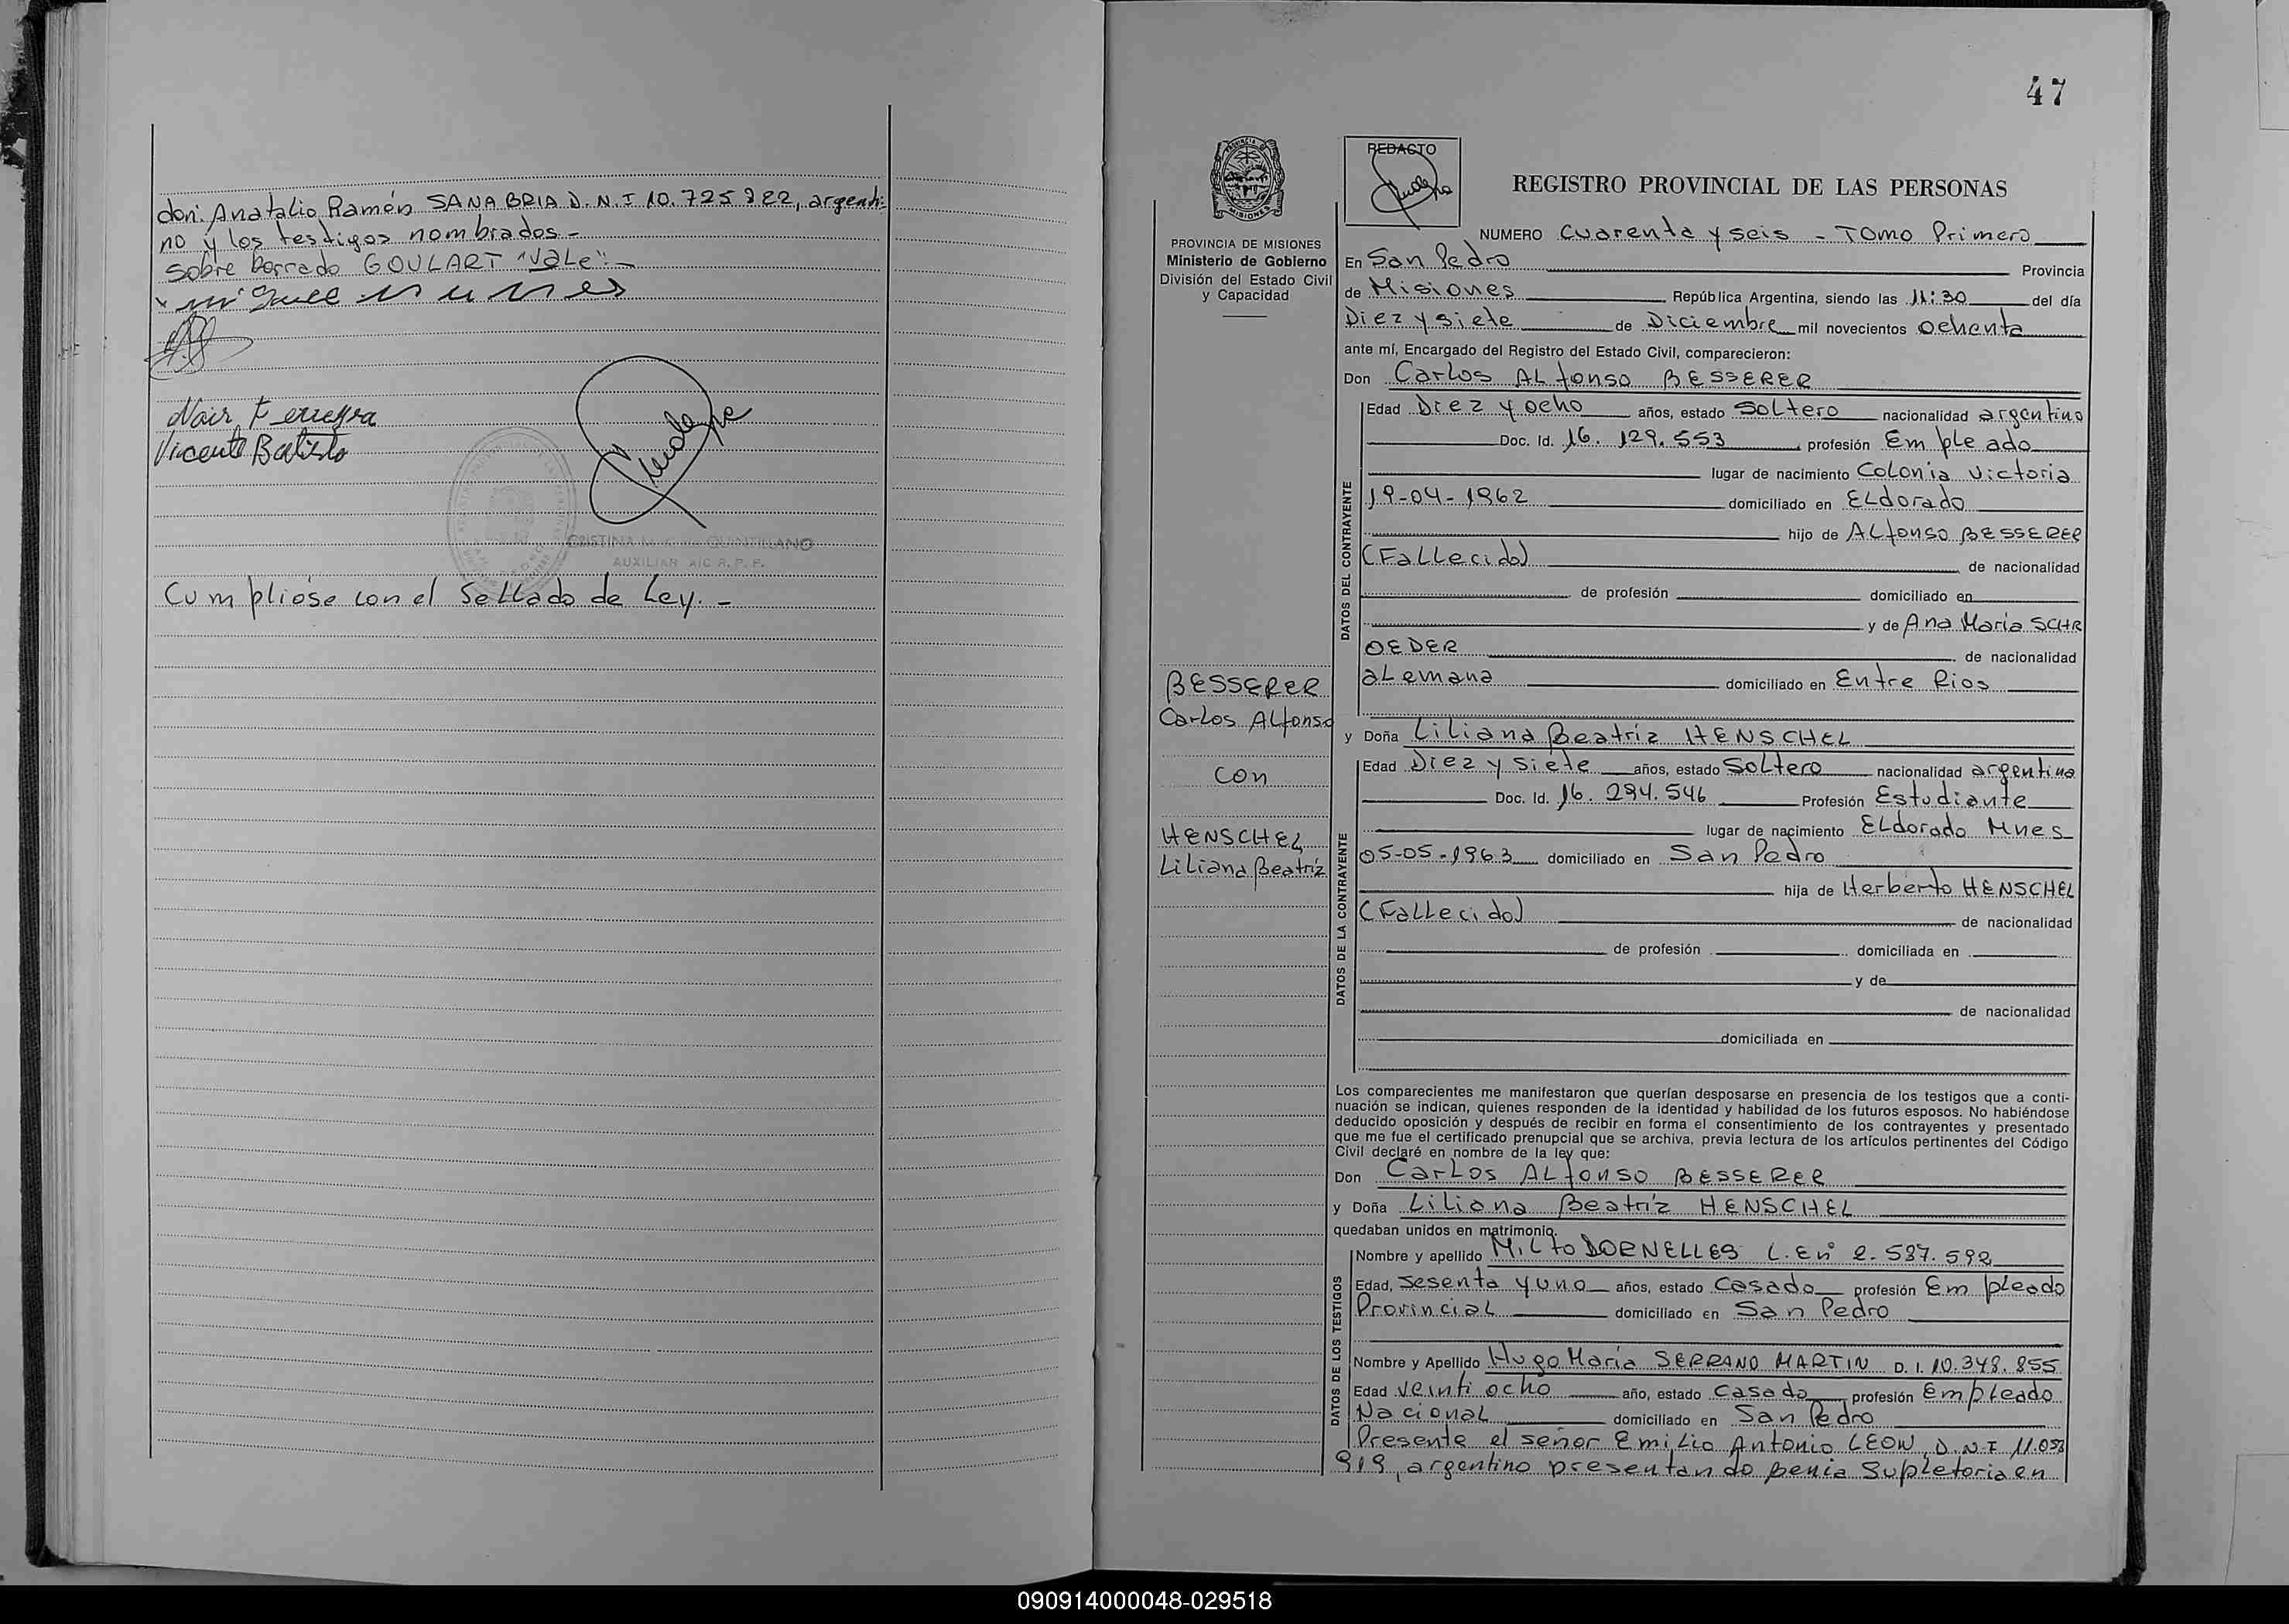 don: Anatalio Ramón SANABRIA D.N.I 10.725.822, argenti=
no y los testigos nombrados -
Sobre borrado GOULART "VALE" -
Vicente Batista
CRISTINA QUINTILLANO
AUXILIAR A/C R. P. P.
Cumplióse con el Sellado de Ley. -
47
REDACTO
REGISTRO PROVINCIAL DE LAS PERSONAS
PROVINCIA DE MISIONES
Ministerio de Gobierno
División del Estado Civil
y Capacidad
NUMERO Cuarenta y seis - TOMO Primero
En San Pedro Provincia
de Misiones República Argentina, siendo las 11:30 del día
Diez y siete de Diciembre mil novecientos ochenta
ante mí, Encargado del Registro del Estado Civil, comparecieron:
Don Carlos Alfonso BESSERER
Edad Diez y ocho años, estado Soltero nacionalidad argentino
Doc. Id. 16.129.553 profesión Empleado
lugar de nacimiento Colonia Victoria
19-04-1962 domiciliado en Eldorado
hijo de Alfonso BESSERER
(Fallecido) de nacionalidad
de profesión domiciliado en
y de Ana María SCHR
OEDER de nacionalidad
alemana domiciliado en Entre Rios
DATOS DEL CONTRAYENTE
BESSERER
Carlos Alfonso
con
HENSCHEL
Liliana Beatríz
y Doña Liliana Beatríz HENSCHEL
Edad Diez y siete años, estado Soltero nacionalidad argentina
Doc. Id. 16.294.546 Profesión Estudiante
lugar de nacimiento Eldorado Mnes
05-05-1963 domiciliado en San Pedro
hija de Herberto HENSCHEL
(Fallecido) de nacionalidad
de profesión domiciliada en
y de
de nacionalidad
domiciliada en
DATOS DE LA CONTRAYENTE
Los comparecientes me manifestaron que querían desposarse en presencia de los testigos que a conti-
nuación se indican, quienes responden de la identidad y habilidad de los futuros esposos. No habiéndose
deducido oposición y después de recibir en forma el consentimiento de los contrayentes y presentado
que me fue el certificado prenupcial que se archiva, previa lectura de los artículos pertinentes del Código
Civil declaré en nombre de la ley que:
Don Carlos Alfonso BESSERER
y Doña Liliana Beatríz HENSCHEL
quedaban unidos en matrimonio.
Nombre y apellido Milto DORNELLES L.E nº 2.587.592
Edad, Sesenta y uno años, estado Casado profesión Empleado
Provincial domiciliado en San Pedro
Nombre y Apellido Hugo María SERRANO MARTIN D.I. 10.348.855
Edad veinti ocho año, estado Casado profesión Empleado
Nacional domiciliado en San Pedro
DATOS DE LOS TESTIGOS
Presente el señor Emilio Antonio LEON, D.N.I 11.053
919, argentino presentando Supletoria en
090914000048-029518